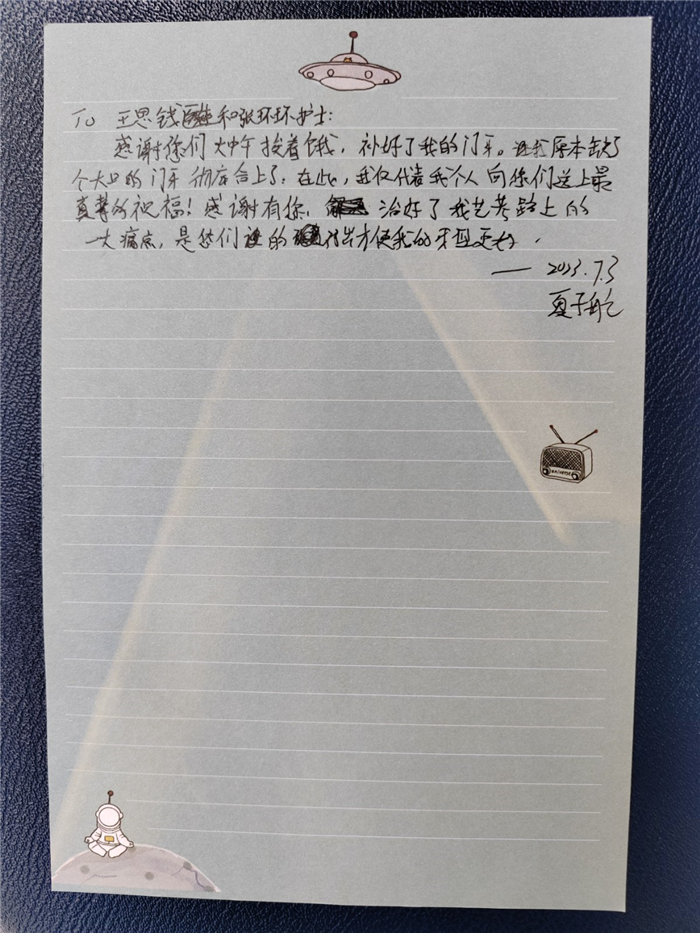 To 王思钱医生和张环环护士:
感谢您们大中午挨着饿,补好了我的门牙。让我原本缺了
个大口的门牙彻底合上了。在此,我仅代表我个人向你们送上最
真挚的祝福!感谢有你, 治好了我艺考路上的
一大痛点,是您们 的 付出才使我的牙 更好.
—— 2023.7.3
夏子航
universe